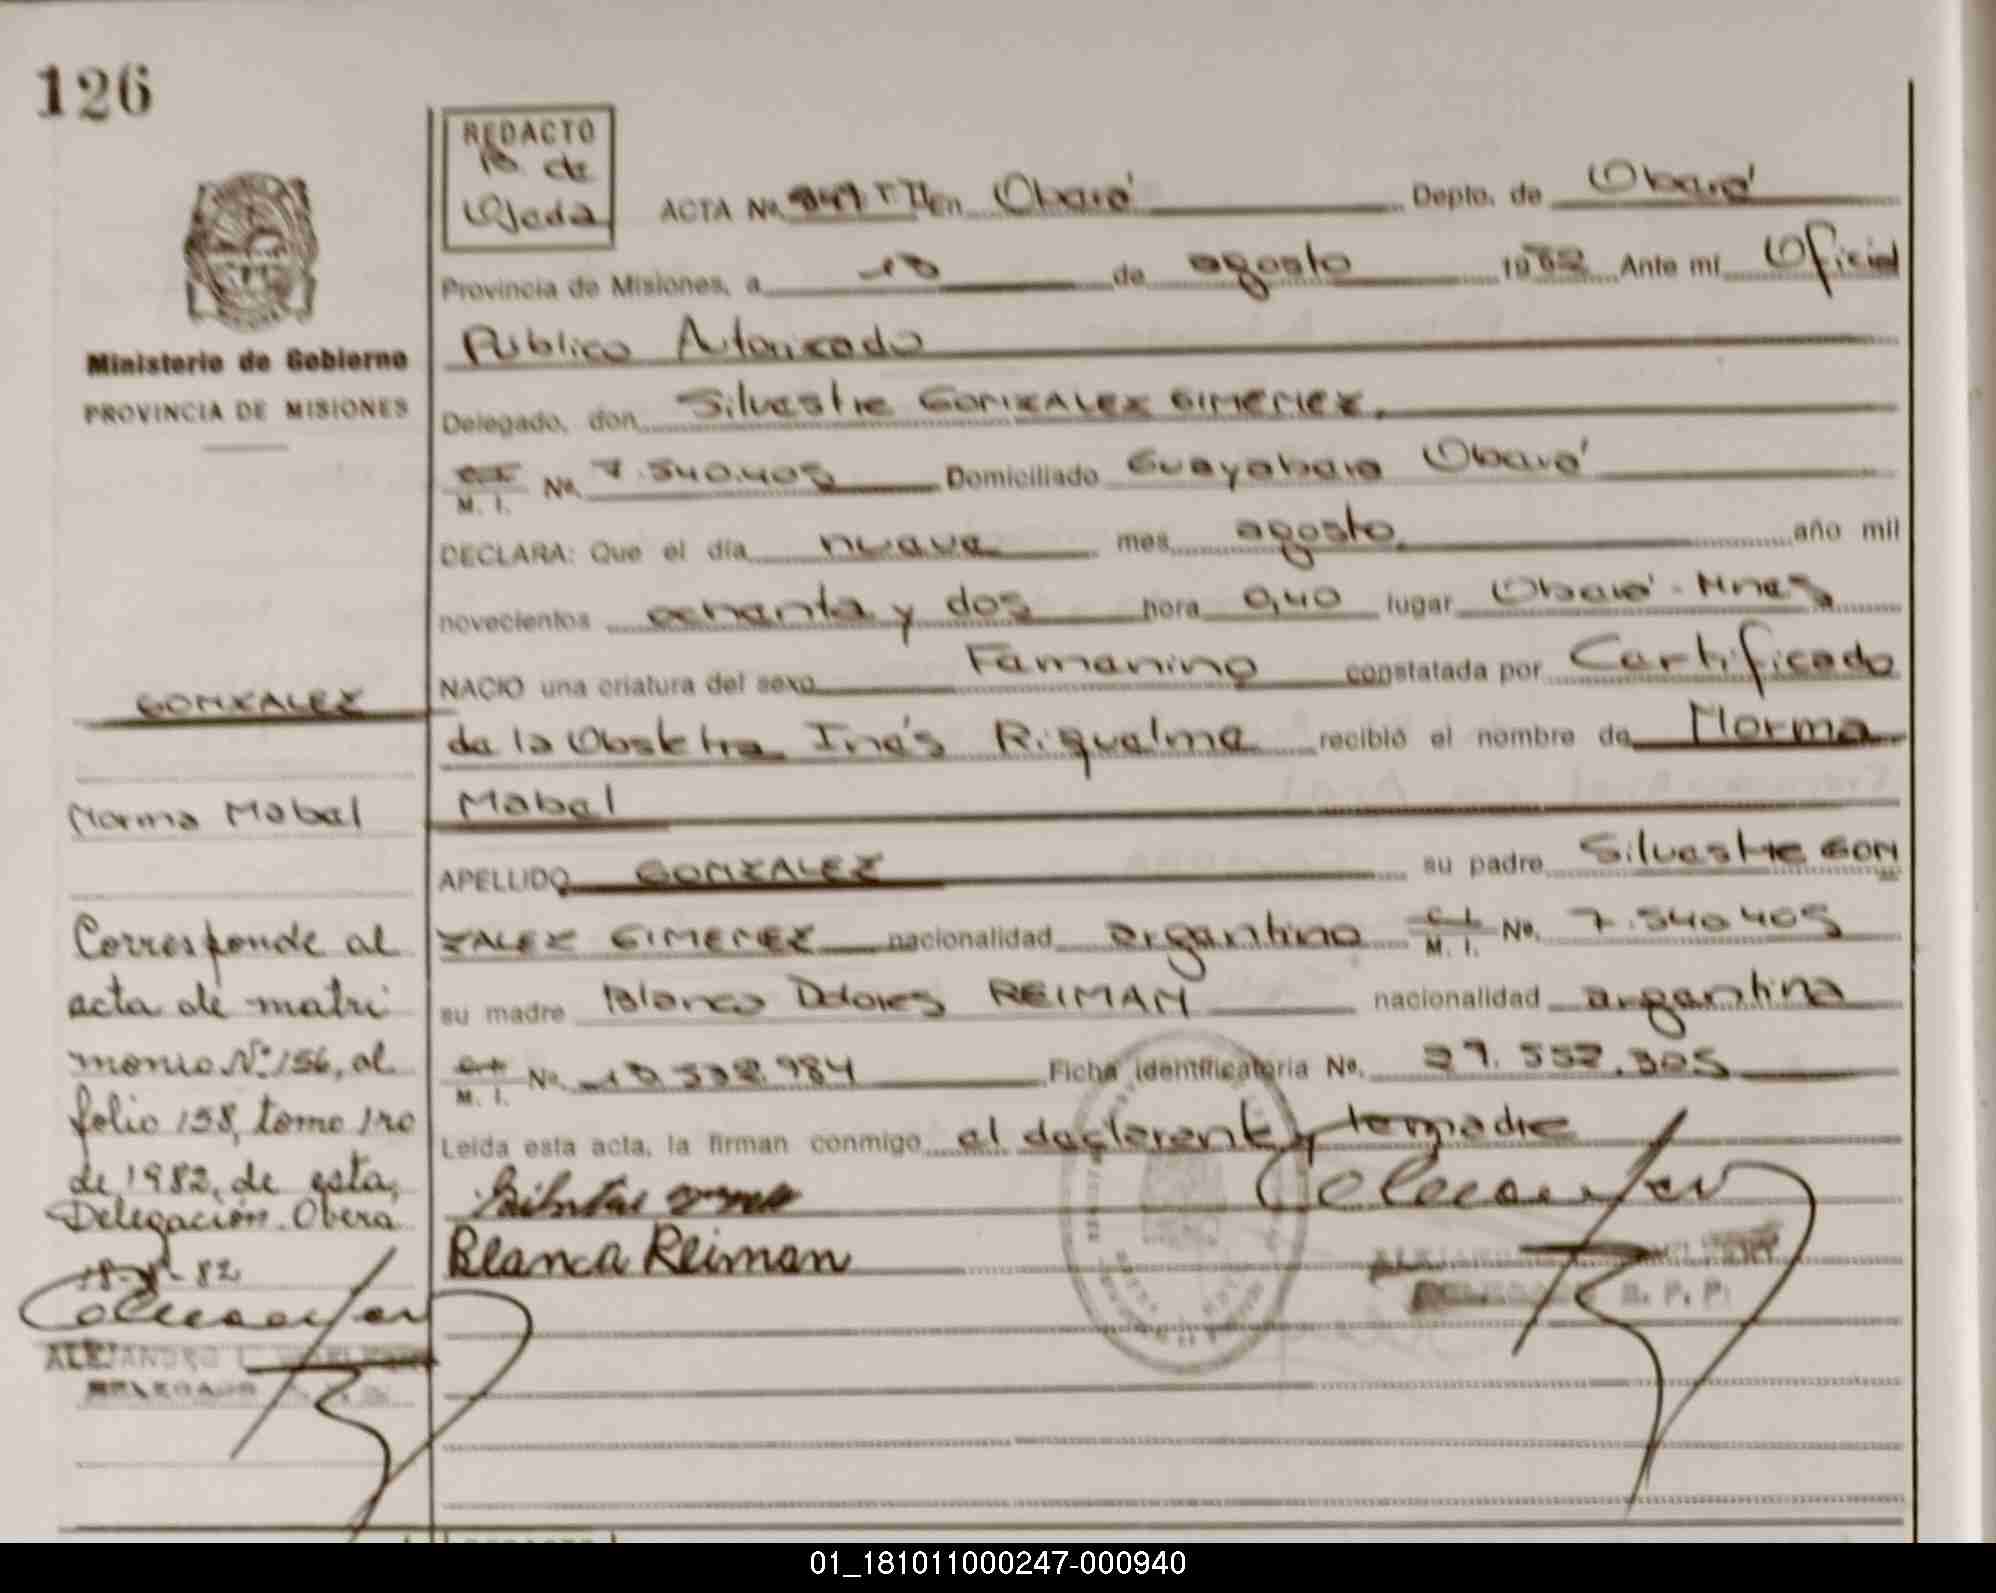 126
REDACTO
B. de
Ojeda
ACTA No. 947 T II En Oberá Depto. de Oberá
Provincia de Misiones, a 18 de agosto 1982 Ante mí Oficial
Público Autorizado
Delegado, don Silvestre GONZALEZ GIMENEZ.
M. I. No. 7.540.405 Domiciliado Guayabera Oberá
DECLARA: Que el día nueve mes agosto año mil
novecientos ochenta y dos hora 0,40 lugar Oberá - Mnes
NACIO una criatura del sexo Femenino constatada por Certificado
de la Obstetra Inés Riquelme recibió el nombre de Norma
Mabel
APELLIDO GONZALEZ su padre Silvestre GON
ZALEZ GIMENEZ nacionalidad argentino C. I. M. I. No. 7.540.405
su madre Blanca Dolores REIMAN nacionalidad argentina
M. I. No. Ficha identificatoria No.
Leída esta acta, la firman conmigo el declarente y la madre
Blanca Reiman
Ministerio de Gobierno
PROVINCIA DE MISIONES
GONZALEZ
Norma Mabel
Corresponde al
acta de matri
monio Nº 156, al
folio 158, tomo 1ro
de 1982, de esta,
Delegación. Oberá
18-8-82
ALEJANDRO
DELEGADO
01_181011000247-000940